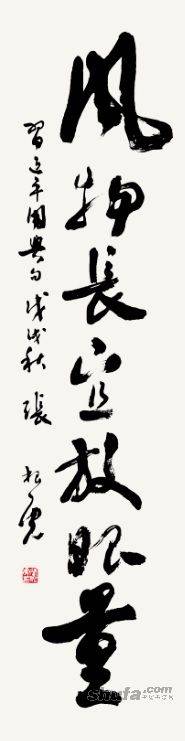 風物長宜放眼量
習近平用典句 戊戌秋 張松虎
shufa.com